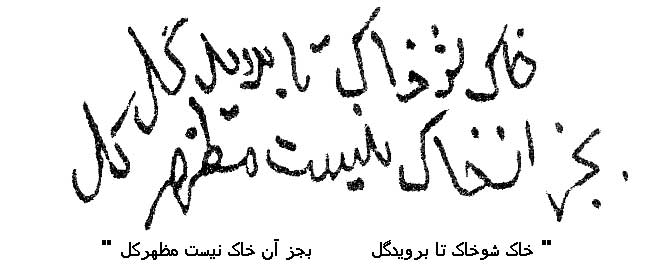 خاک شو خاک تا بروید گل
بجز از خاک نیست مظهر کل
" خاک شوخاک تا برویدگل بجز آن خاک نیست مظهرکل "